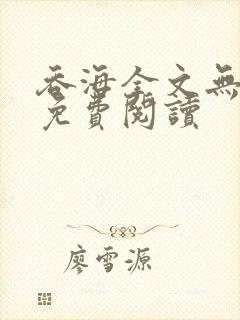 吞海全文無
免費閱讀
廖雪源